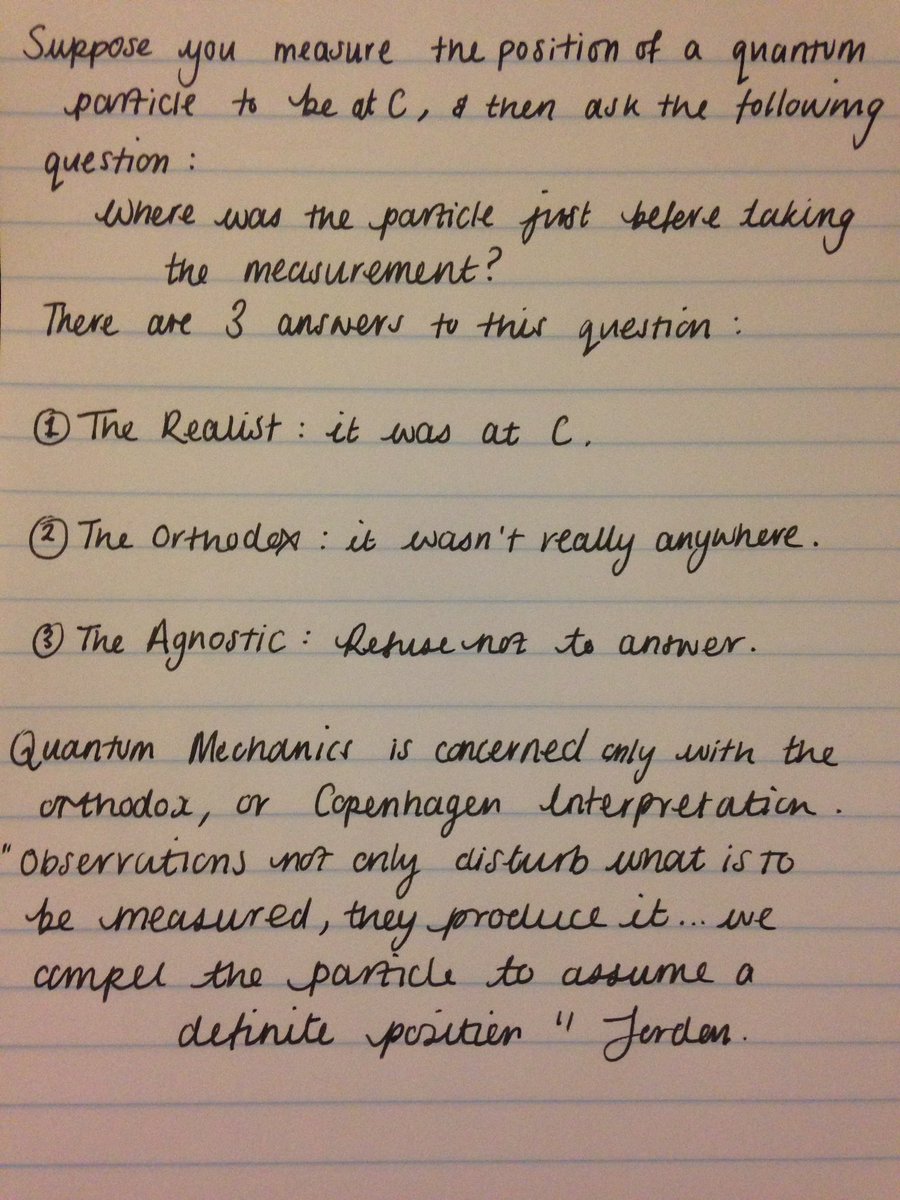 Suppose you measure the position of a quantum
particle to be at C, & then ask the following
question :
Where was the particle just before taking
the measurement?
There are 3 answers to this question :
① The Realist : it was at C .
② The Orthodox : it wasn't really anywhere .
③ The Agnostic : Refuse not to answer .
Quantum Mechanics is concerned only with the
orthodox, or Copenhagen Interpretation .
"Observations not only disturb what is to
be measured, they produce it... we
compel the particle to assume a
definite position " Jordan .